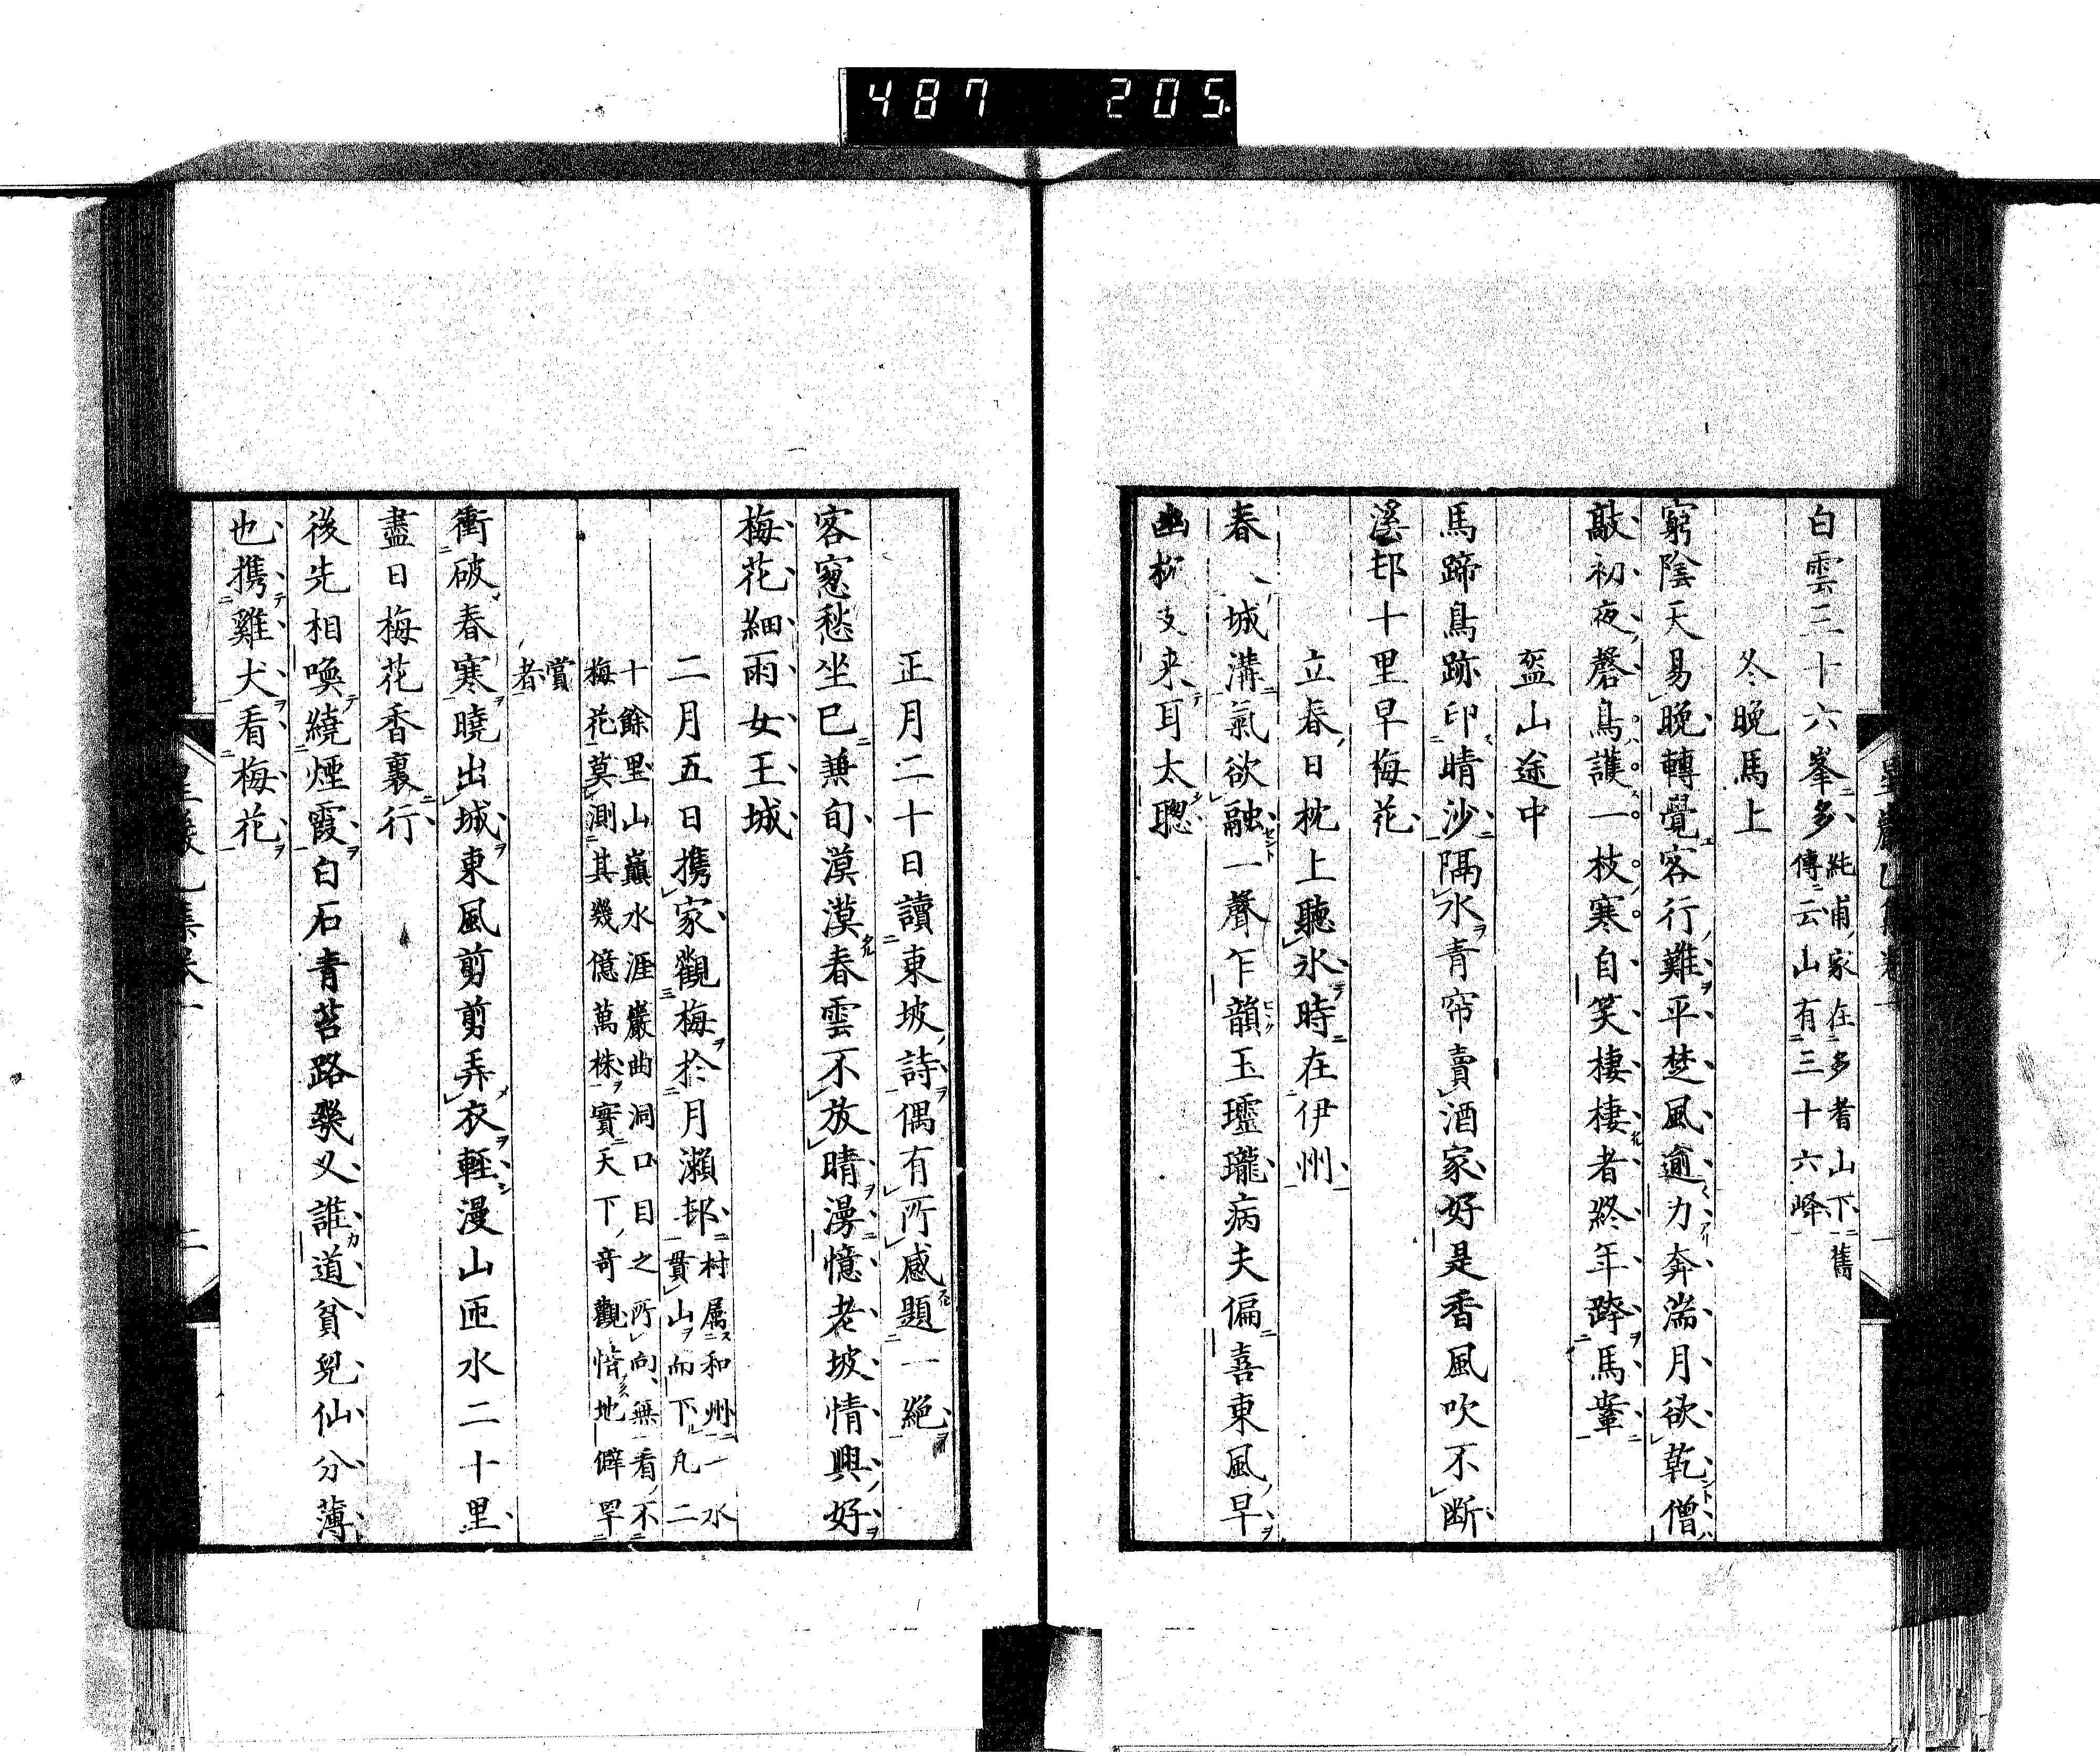 487 205
白雲三十六峯多 純浦家在多耆山下舊
傳云山有三十六峰
冬晩馬上
窮陰天易晩轉覺客行難平楚風逾力奔湍月欲乾僧
敲初夜磬鳥護一枝寒自笑棲棲者終年跨馬鞌
盔山途中
馬蹄鳥跡印晴沙隔水青帘賣酒家好是香風吹不断
溪邨十里早梅花
立春日枕上聽氷時在伊州
春城溝氣欲融一聲乍韻玉瓏病夫偏喜東風早
幽枕支来耳太聰
正月二十日讀東坡詩偶有所感題一絕
客窓愁坐已兼旬漠漠春雲不放晴漫憶老坡情興好
梅花細雨女王城
二月五日携家觀梅於月瀬邨 村属和州一水
貫山而下凡二
十餘里山巓水涯巖曲洞口目之所向無看不
梅花莫測其幾億萬株實天下奇觀惜地僻罕
賞
者
衝破春寒曉出城東風剪剪弄衣輕漫山匝水二十里
盡日梅花香裏行
後先相喚繞煙霞白石青苔路幾叉誰道貧兒仙分薄
也携雞犬看梅花
二